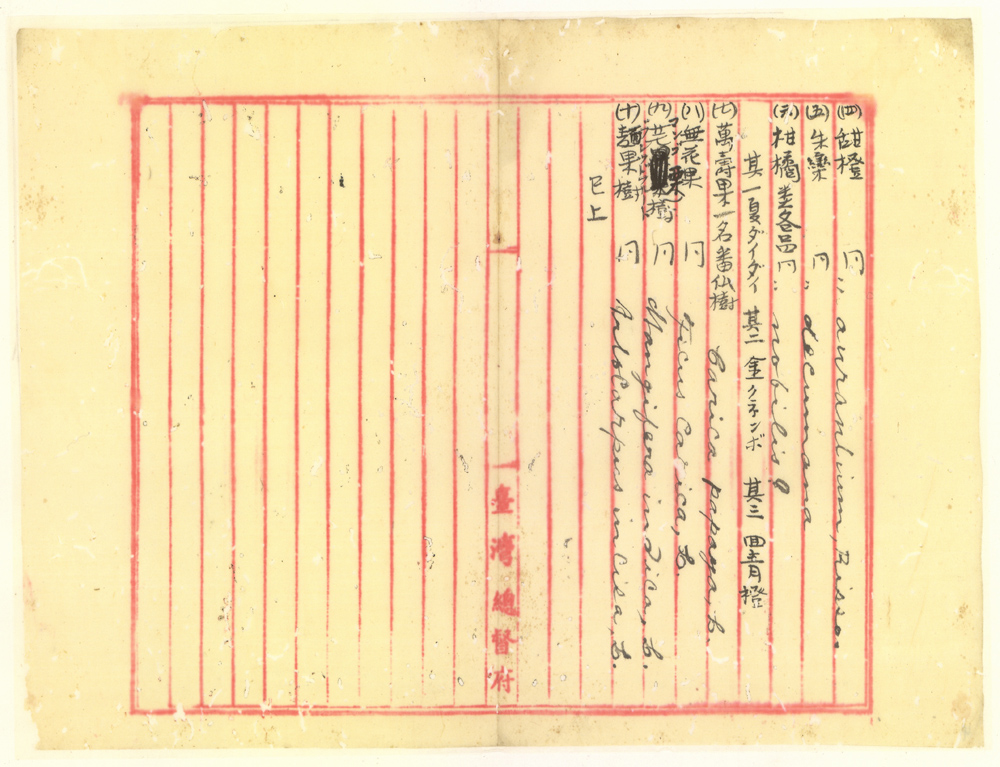 (四)甜橙 円 〃 aurantium, Risso.
(五)朱欒 円 〃 decumana
(六)柑橘类各品円 〃 nobilis
其一夏ダイダイ 其二金クネンボ 其三回青橙
(七)萬壽果一名番仏樹 Carica papaya, L.
(八)無花果 円 Ficus Carica, L.
(九) 円 Mangifera indica, L.
(十)麺果樹 円 Artocarpus incisa, L.
已上
臺灣總督府